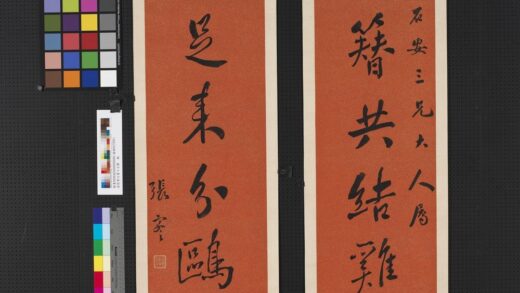 石安三兄大人屬
簪共結雞
足來分鷗
張謇